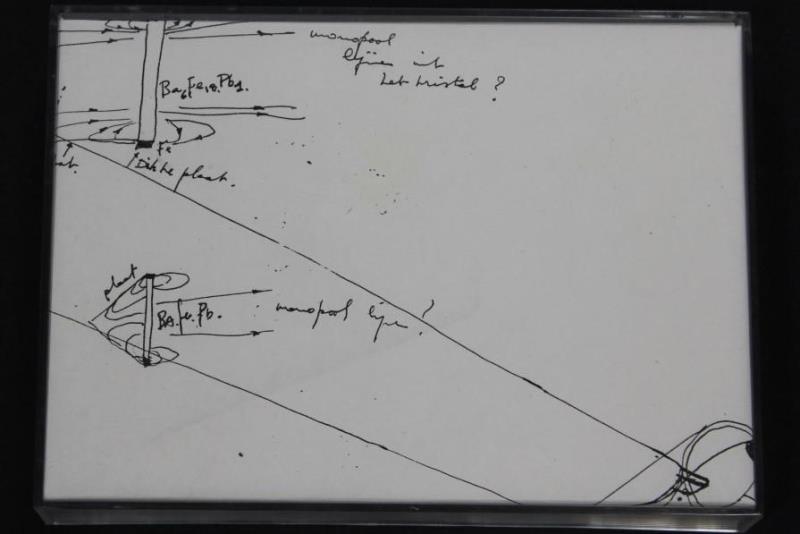 monopool
lijnen uit
het kristal ?
Ba₆Fe₁₈Pb₁.
Fe
Dikke plaat.
at.
plaat
BA.Fe.Pb.
monopool lijnen ?